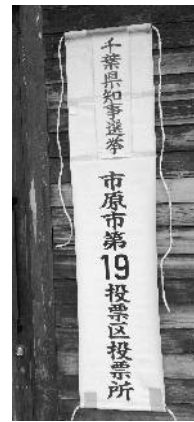 千葉県知事選挙
市原市第19投票区投票所